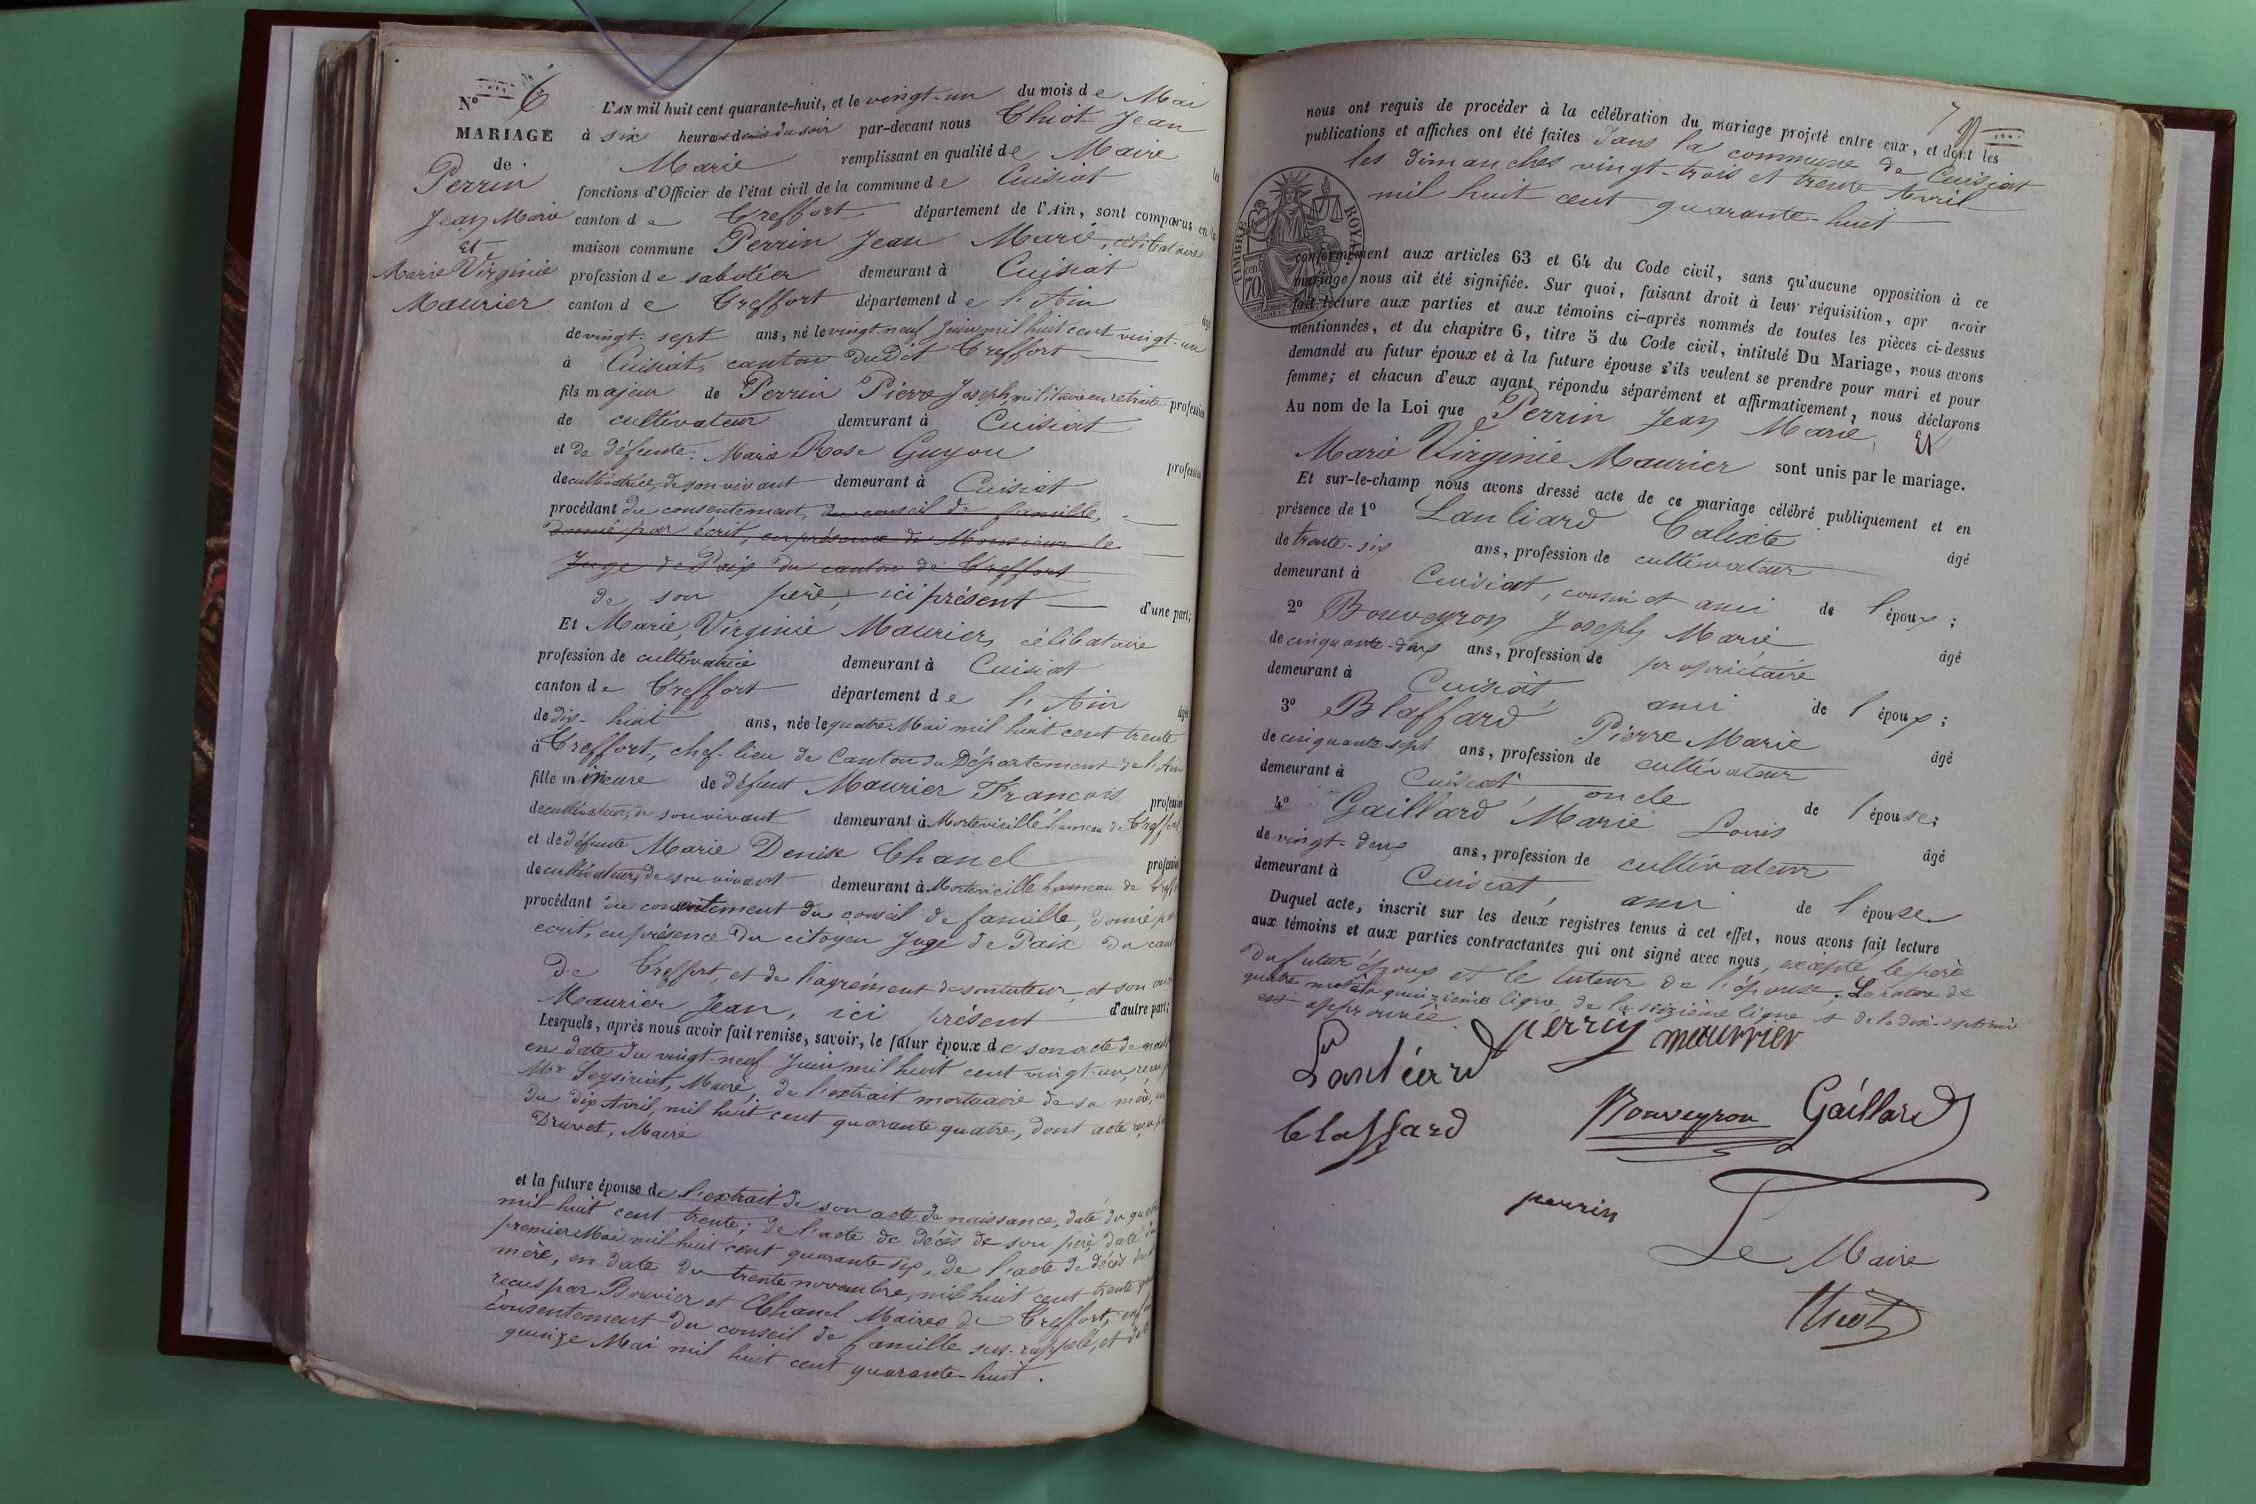 N° 6
MARIAGE
de
Perrin
Jean Marie
Et
Marie Virginie
Maurier
L'AN mil huit cent quarante-huit, et le vingt-un du mois de Mai
à six heures du soir par-devant nous Thiot Jean
Marie remplissant en qualité de Maire les
fonctions d'Officier de l'état civil de la commune de Cuisiat
canton de Treffort département de l'Ain, sont comparus en la
maison commune Perrin Jean Marie, célibataire
profession de sabotier demeurant à Cuisiat
canton de Treffort département de l'Ain âgé
de vingt-sept ans, né le vingt neuf Juin mil huit cent vingt-un
à Cuisiat, canton dudit Treffort
fils majeur de Perrin Pierre Joseph, militaire en retraite profession
de cultivateur demeurant à Cuisiat
et de défunte: Marie Rose Guyon profession
de cultivatrice, de son vivant demeurant à Cuisiat
procédant du consentement, du conseil de famille,
donné par écrit, en présence de Monsieur le
Juge de Paix du canton de Treffort
de son père, ici présent d'une part;
Et Marie, Virginie Maurier, célibataire
profession de cultivatrice demeurant à Cuisiat
canton de Treffort département de l'Ain âgée
de dix-huit ans, née le quatre Mai mil huit cent trente
à Treffort, chef-lieu de Canton du Département de l'Ain
fille mineure de défunt Maurier François profession
de cultivateur, de son vivant demeurant à Mortevieille hameau de Treffort
et de défunte Marie Denise Chanel profession
de cultivateur, de son vivant demeurant à Mortevieille hameau de Treffort
procédant du consentement du conseil de famille, donné par
écrit, en présence du citoyen Juge de Paix du cant
de Treffort, et de l'agrément de son tuteur, et son
Maurier Jean, ici présent d'autre part;
Lesquels, après nous avoir fait remise, savoir, le futur époux de son acte de nais
en date du vingt-neuf Juin mil huit cent vingt-un, reçu p
Mr Seysiriat, Maire, de l'extrait mortuaire de sa mère,
du dix Avril, mil huit cent quarante quatre, dont acte reçu p
Druvet, Maire
et la future épouse de l'extrait de son acte de naissance, daté du quatre
mil huit cent trente; de l'acte de décès de son père daté du
premier Mai mil huit cent quarante six, de l'acte de décès de
mère, en date du trente novembre, mil huit cent trente
reçus par Bouvier et Chanel Maires de Treffort, enfin
consentement du conseil de famille sus-rappelé, et du
quinze Mai mil huit cent quarante-huit.
7
nous ont requis de procéder à la célébration du mariage projeté entre eux, et dont les
publications et affiches ont été faites dans la commune de Cuisiat
les dimanches vingt-trois et trente Avril
mil huit cent quarante-huit
TIMBRE ROYAL
70
conformément aux articles 63 et 64 du Code civil, sans qu'aucune opposition à ce
mariage nous ait été signifiée. Sur quoi, faisant droit à leur réquisition, apr avoir
fait lecture aux parties et aux témoins ci-après nommés de toutes les pièces ci-dessus
mentionnées, et du chapitre 6, titre 5 du Code civil, intitulé Du Mariage, nous avons
demandé au futur époux et à la future épouse s'ils veulent se prendre pour mari et pour
femme; et chacun d'eux ayant répondu séparément et affirmativement, nous déclarons
Au nom de la Loi que Perrin Jean Marie, Et
Marie Virginie Maurier sont unis par le mariage.
Et sur-le-champ nous avons dressé acte de ce mariage célébré publiquement et en
présence de 1° Lanliard Calixte âgé
de trente-six ans, profession de cultivateur
demeurant à Cuisiat, cousin et ami de l'époux;
2° Bouveyron Joseph Marie âgé
de cinquante-deux ans, profession de propriétaire
demeurant à Cuisiat, ami de l'époux;
3° Blaffard Pierre Marie âgé
de cinquante sept ans, profession de cultivateur
demeurant à Cuisiat oncle de l'épouse;
4° Gaillard Marie Louis âgé
de vingt-deux ans, profession de cultivateur
demeurant à Cuisiat, ami de l'épouse
Duquel acte, inscrit sur les deux registres tenus à cet effet, nous avons fait lecture
aux témoins et aux parties contractantes qui ont signé avec nous, excepté le père
du futur époux et le tuteur de l'épouse. La rature de
quatre mots à la quinzième ligne, de la seizième ligne et de la dix-septième
est approuvée
Perrin maurrier
Lanliard
Blaffard Bouveyron Gaillard
perrin
Le Maire
Thiot